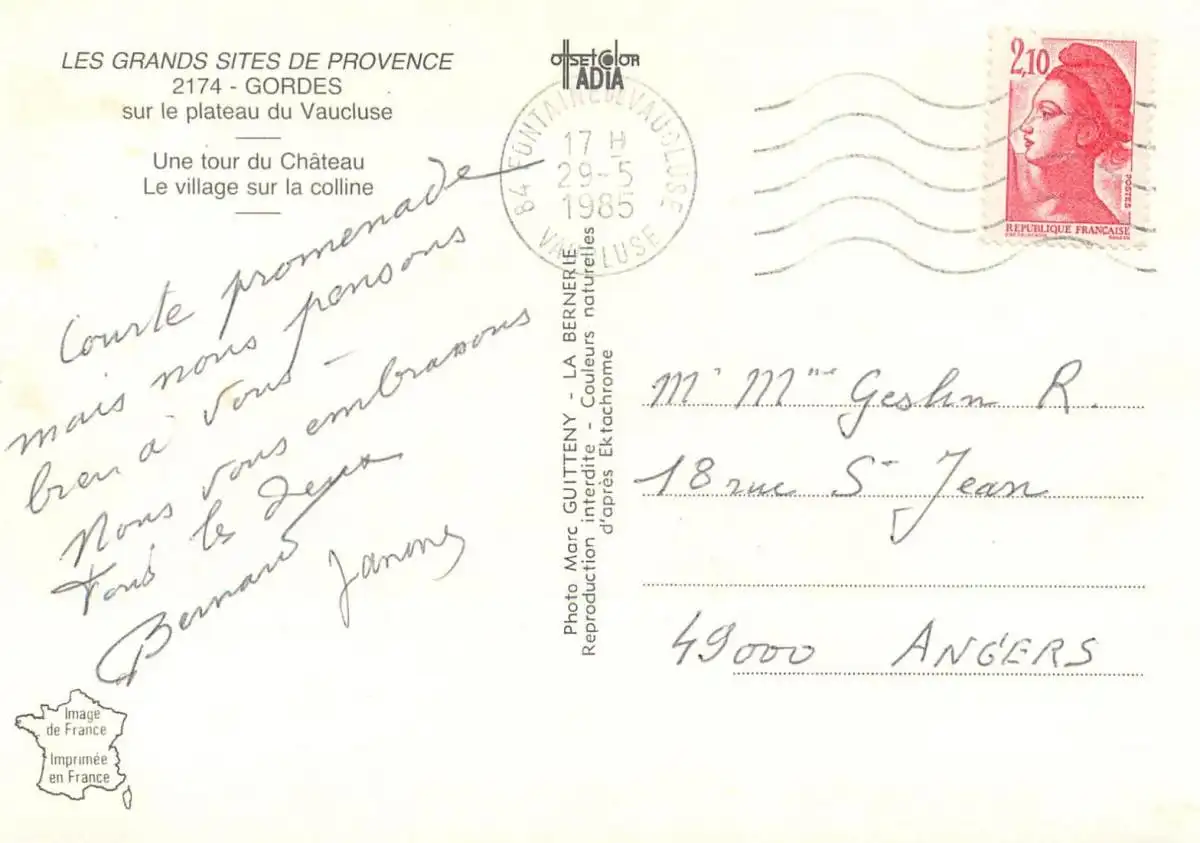 LES GRANDS SITES DE PROVENCE
2174 - GORDES
sur le plateau du Vaucluse
Une tour du Château
Le village sur la colline
Courte promenade
mais nous pensons
bien à vous -
Nous vous embrassons
Tous les deux
Bernard
Image
de France
Imprimée
en France
offsetcolor
ADIA
84 FONTAINE DE VAUCLUSE
17 H
29-5
1985
VAUCLUSE
Photo Marc GUITTENY - LA BERNERIE
Reproduction interdite - Couleurs naturelles
d'après Ektachrome
2,10
POSTES
REPUBLIQUE FRANÇAISE
Mr Mme Geslin R.
18 rue St Jean
49000 ANGERS